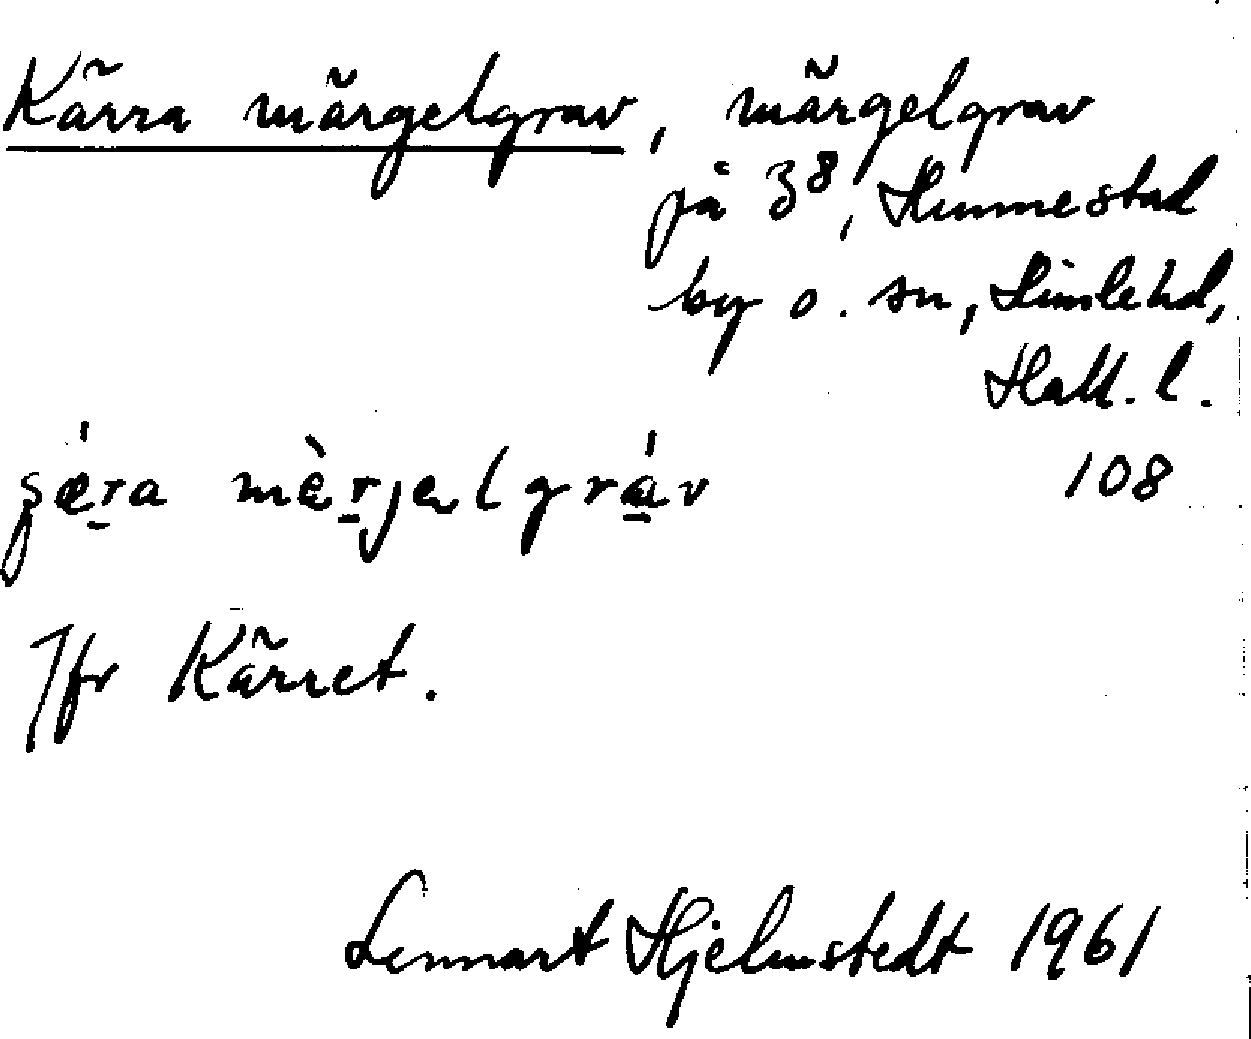 Kärra märgelgrav, märgelgrav
på 3⁸, Hunnestad
by o. sn, Himle hd,
Hall. l.
mèrjelgráv 108
Jfr Kärret.
Lennart Hjelmstedt 1961